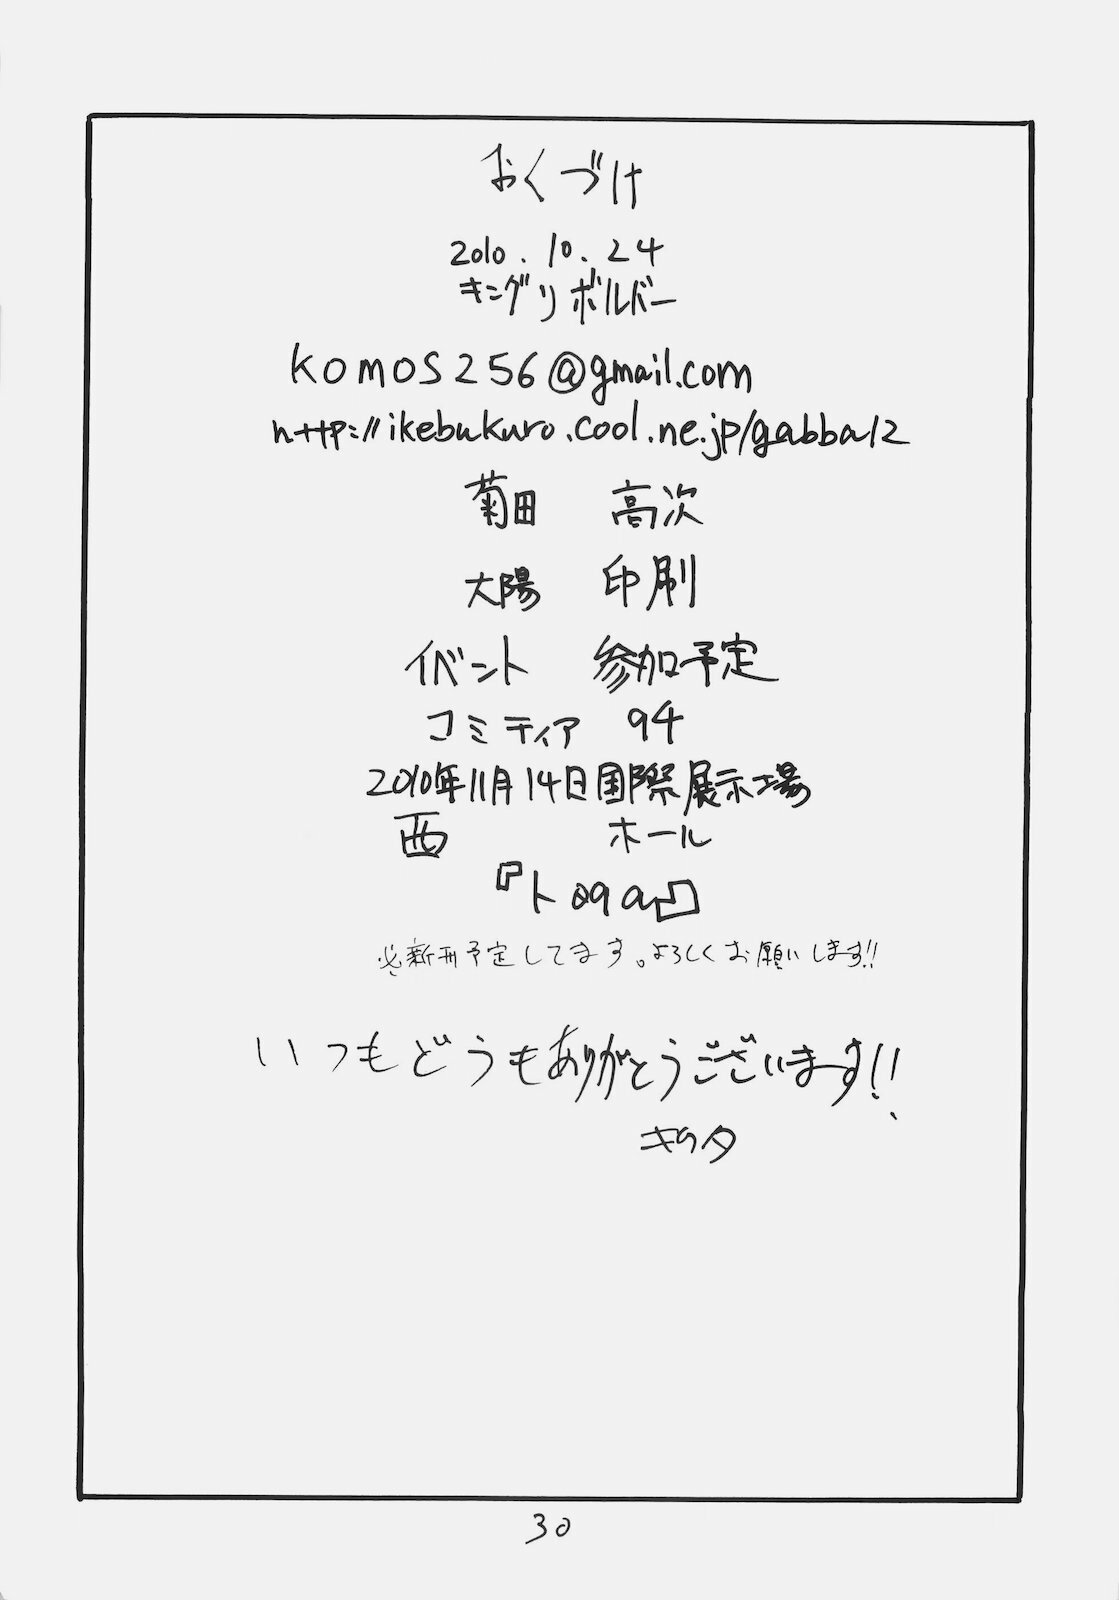 おくづけ
2010.10.24
キングリボルバー
komos256@gmail.com
http://ikebukuro.cool.ne.jp/gabba12
菊田　高次
大陽　印刷
イベント　参加予定
コミティア　94
2010年11月14日国際展示場
西　ホール
『ト09a』
※新刊予定してます。よろしくお願いします!!
いつもどうもありがとうございます!!
キクタ
30